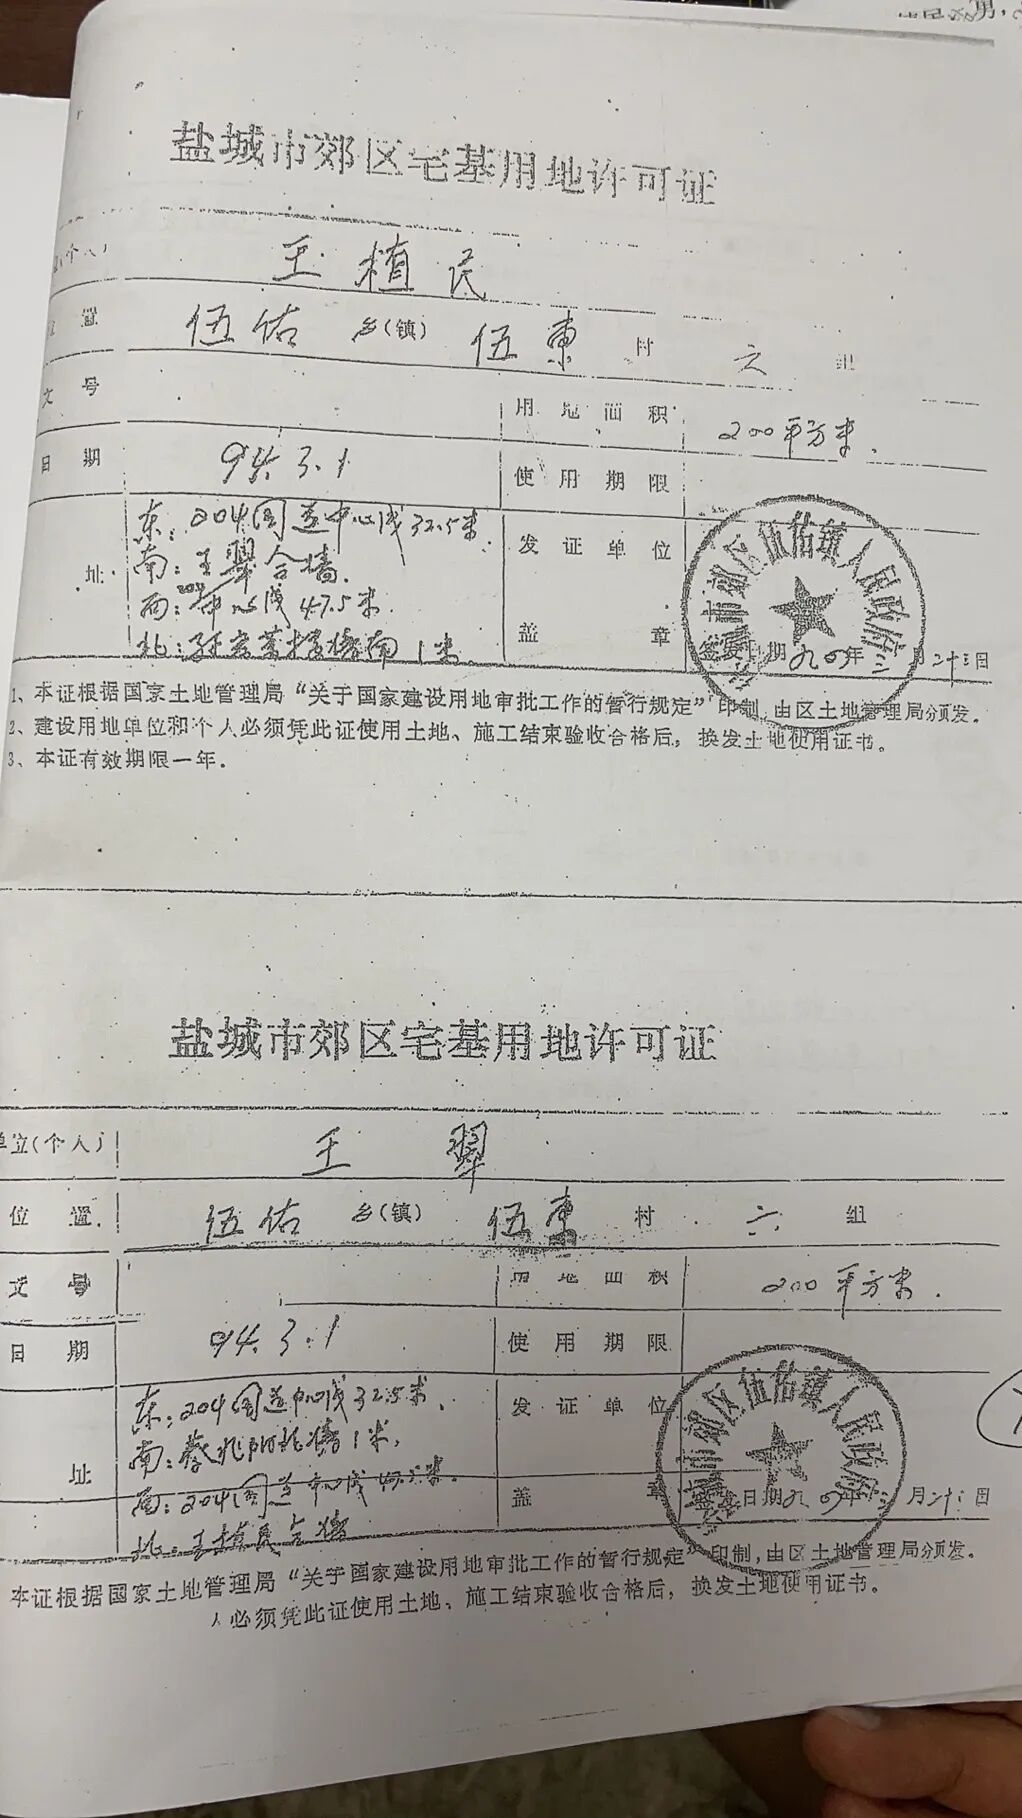 男,
盐城市郊区宅基用地许可证
(个人) 王植民
置 伍佑 乡(镇) 伍东 村 六 组
文号 用地面积 200平方米.
日期 94.3.1 使用期限
东:204国道中心线32.5米. 发证单位
址 南:王翠合墙.
西:204中心线47.5米.
北: 墙南1米. 盖章 签发日期九四年三月二十三日
郊区伍佑镇人民政府
1、本证根据国家土地管理局“关于国家建设用地审批工作的暂行规定”印制,由区土地管理局颁发.
2、建设用地单位和个人必须凭此证使用土地、施工结束验收合格后,换发土地使用证书。
3、本证有效期限一年.
盐城市郊区宅基用地许可证
单位(个人) 王翠
位置 伍佑 乡(镇) 伍东 村 六 组
文号 用地面积 200平方米.
日期 94.3.1 使用期限
东:204国道中心线32.5米. 发证单位
南:蔡兆 墙1米.
址 西:204国道中心线47.5米. 盖章 签发日期九四年三月二十三日
北:王植民合墙
郊区伍佑镇人民政府
本证根据国家土地管理局“关于国家建设用地审批工作的暂行规定”印制,由区土地管理局颁发.
人必须凭此证使用土地、施工结束验收合格后,换发土地使用证书。